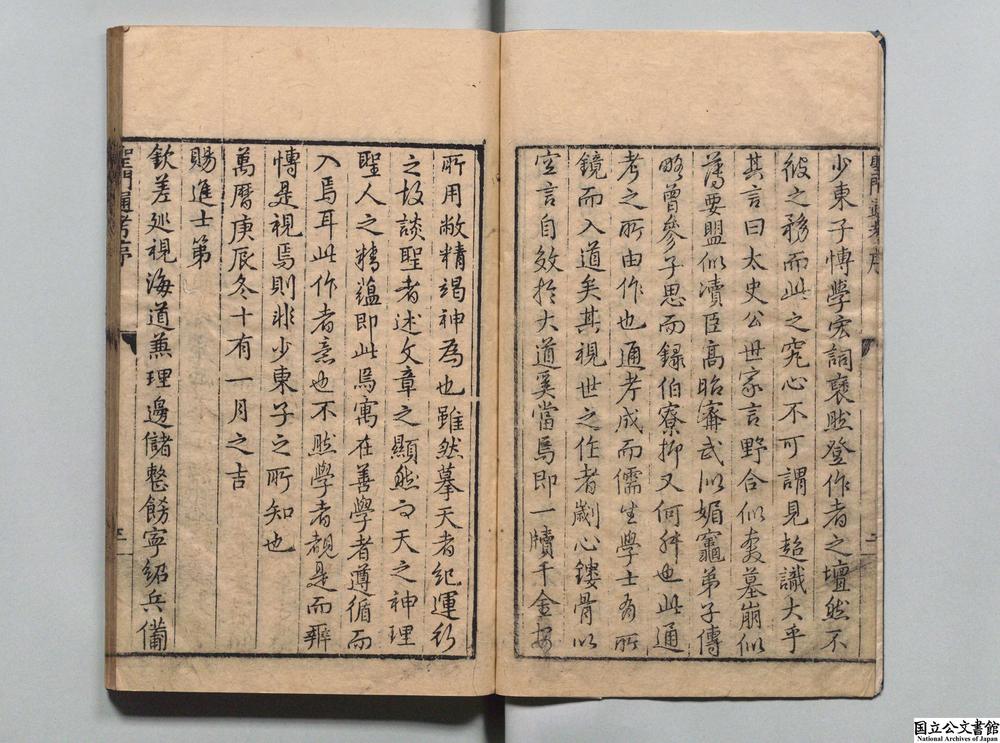 聖門通考序
少東子博學宏詞裒然登作者之壇然不
彼之務而此之究心不可謂見超識大乎
其言曰太史公世家言野合似矣墓崩似
蕩要盟似凟臣高昭甯武以媚竈弟子傳
略曾參子思而録伯寮抑又何舛也此通
考之所由作也通考成而儒生學士有所
鏡而入道矣其視世之作者劌心鏤骨以
空言自效於大道奚當焉即一牘千金安
所用敝精竭神為也雖然摹天者紀運行
之故談聖者述文章之顯然而天之神理
聖人之精蘊即此焉寓在善學者遵循而
入焉耳此作者意也不然學者覩是而辭
博是視焉則非少東子之所知也
萬曆庚辰冬十有一月之吉
賜進士第
欽差廵視海道兼理邊儲整飭寧紹兵備
聖門通考序
国立公文書館
National Archives of Japan